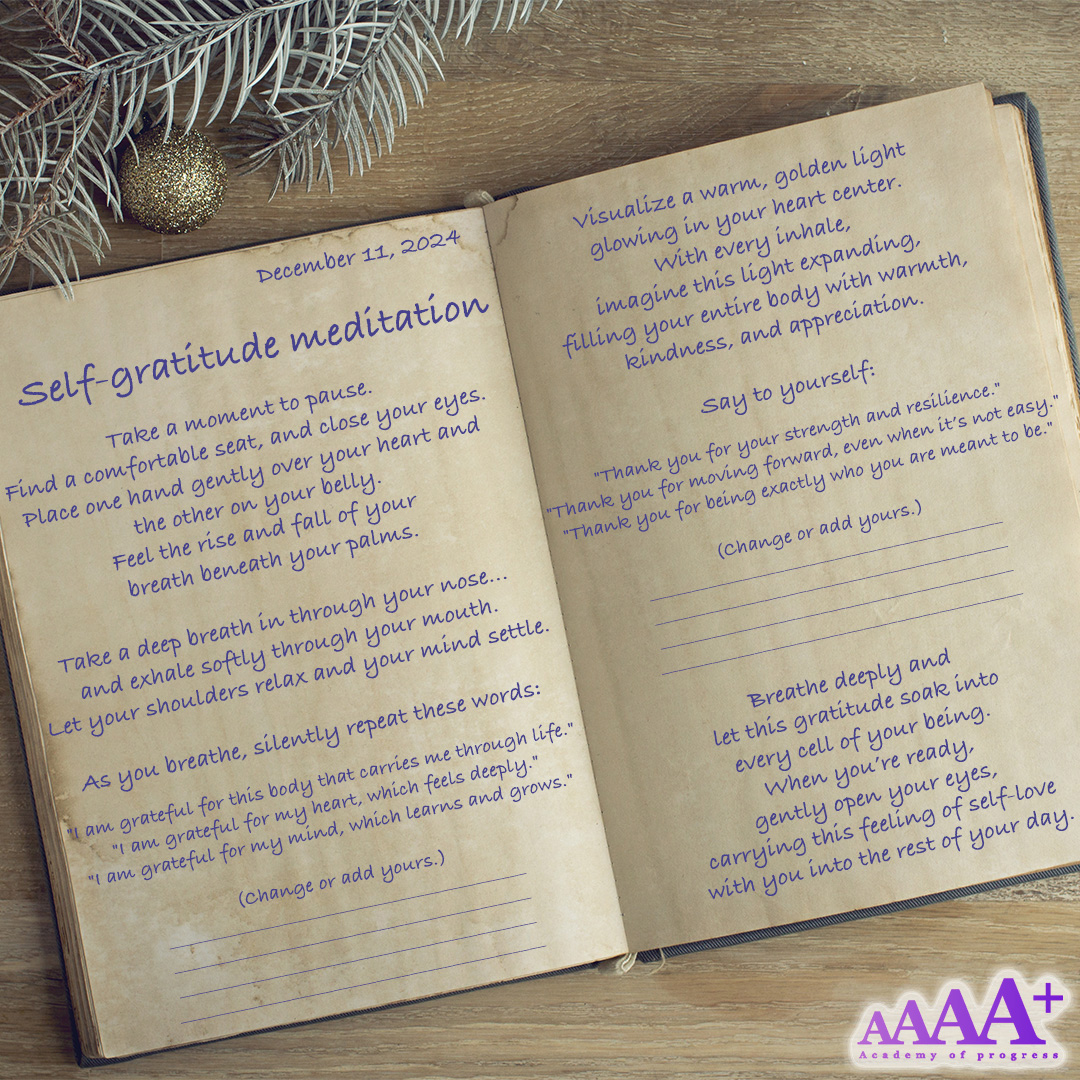 December 11, 2024
Self-gratitude meditation
Take a moment to pause.
Find a comfortable seat, and close your eyes.
Place one hand gently over your heart and
the other on your belly.
Feel the rise and fall of your
breath beneath your palms.
Take a deep breath in through your nose...
and exhale softly through your mouth.
Let your shoulders relax and your mind settle.
As you breathe, silently repeat these words:
"I am grateful for this body that carries me through life."
"I am grateful for my heart, which feels deeply."
"I am grateful for my mind, which learns and grows."
(Change or add yours.)
Visualize a warm, golden light
glowing in your heart center.
With every inhale,
imagine this light expanding,
filling your entire body with warmth,
kindness, and appreciation.
Say to yourself:
"Thank you for your strength and resilience."
"Thank you for moving forward, even when it's not easy."
"Thank you for being exactly who you are meant to be."
(Change or add yours.)
Breathe deeply and
let this gratitude soak into
every cell of your being.
When you're ready,
gently open your eyes,
carrying this feeling of self-love
with you into the rest of your day.
AAAA+
Academy of progress